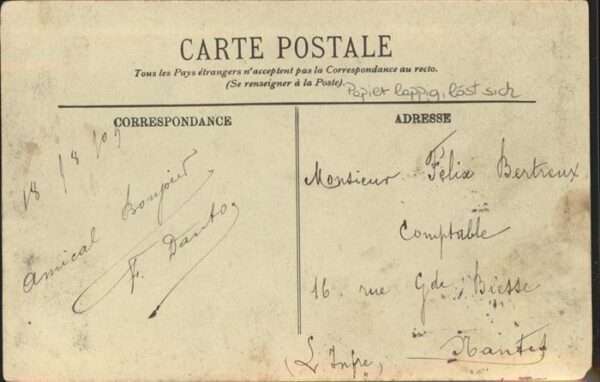 CARTE POSTALE
Tous les Pays étrangers n'acceptent pas la Correspondance au recto.
(Se renseigner à la Poste).
Papier lappig, löst sich
CORRESPONDANCE
18/8/09
Amical Bonjour
F. Danto.
ADRESSE
Monsieur Félix Bertreux
Comptable
16. rue Gde Biesse
Nantes
(L. Infre)